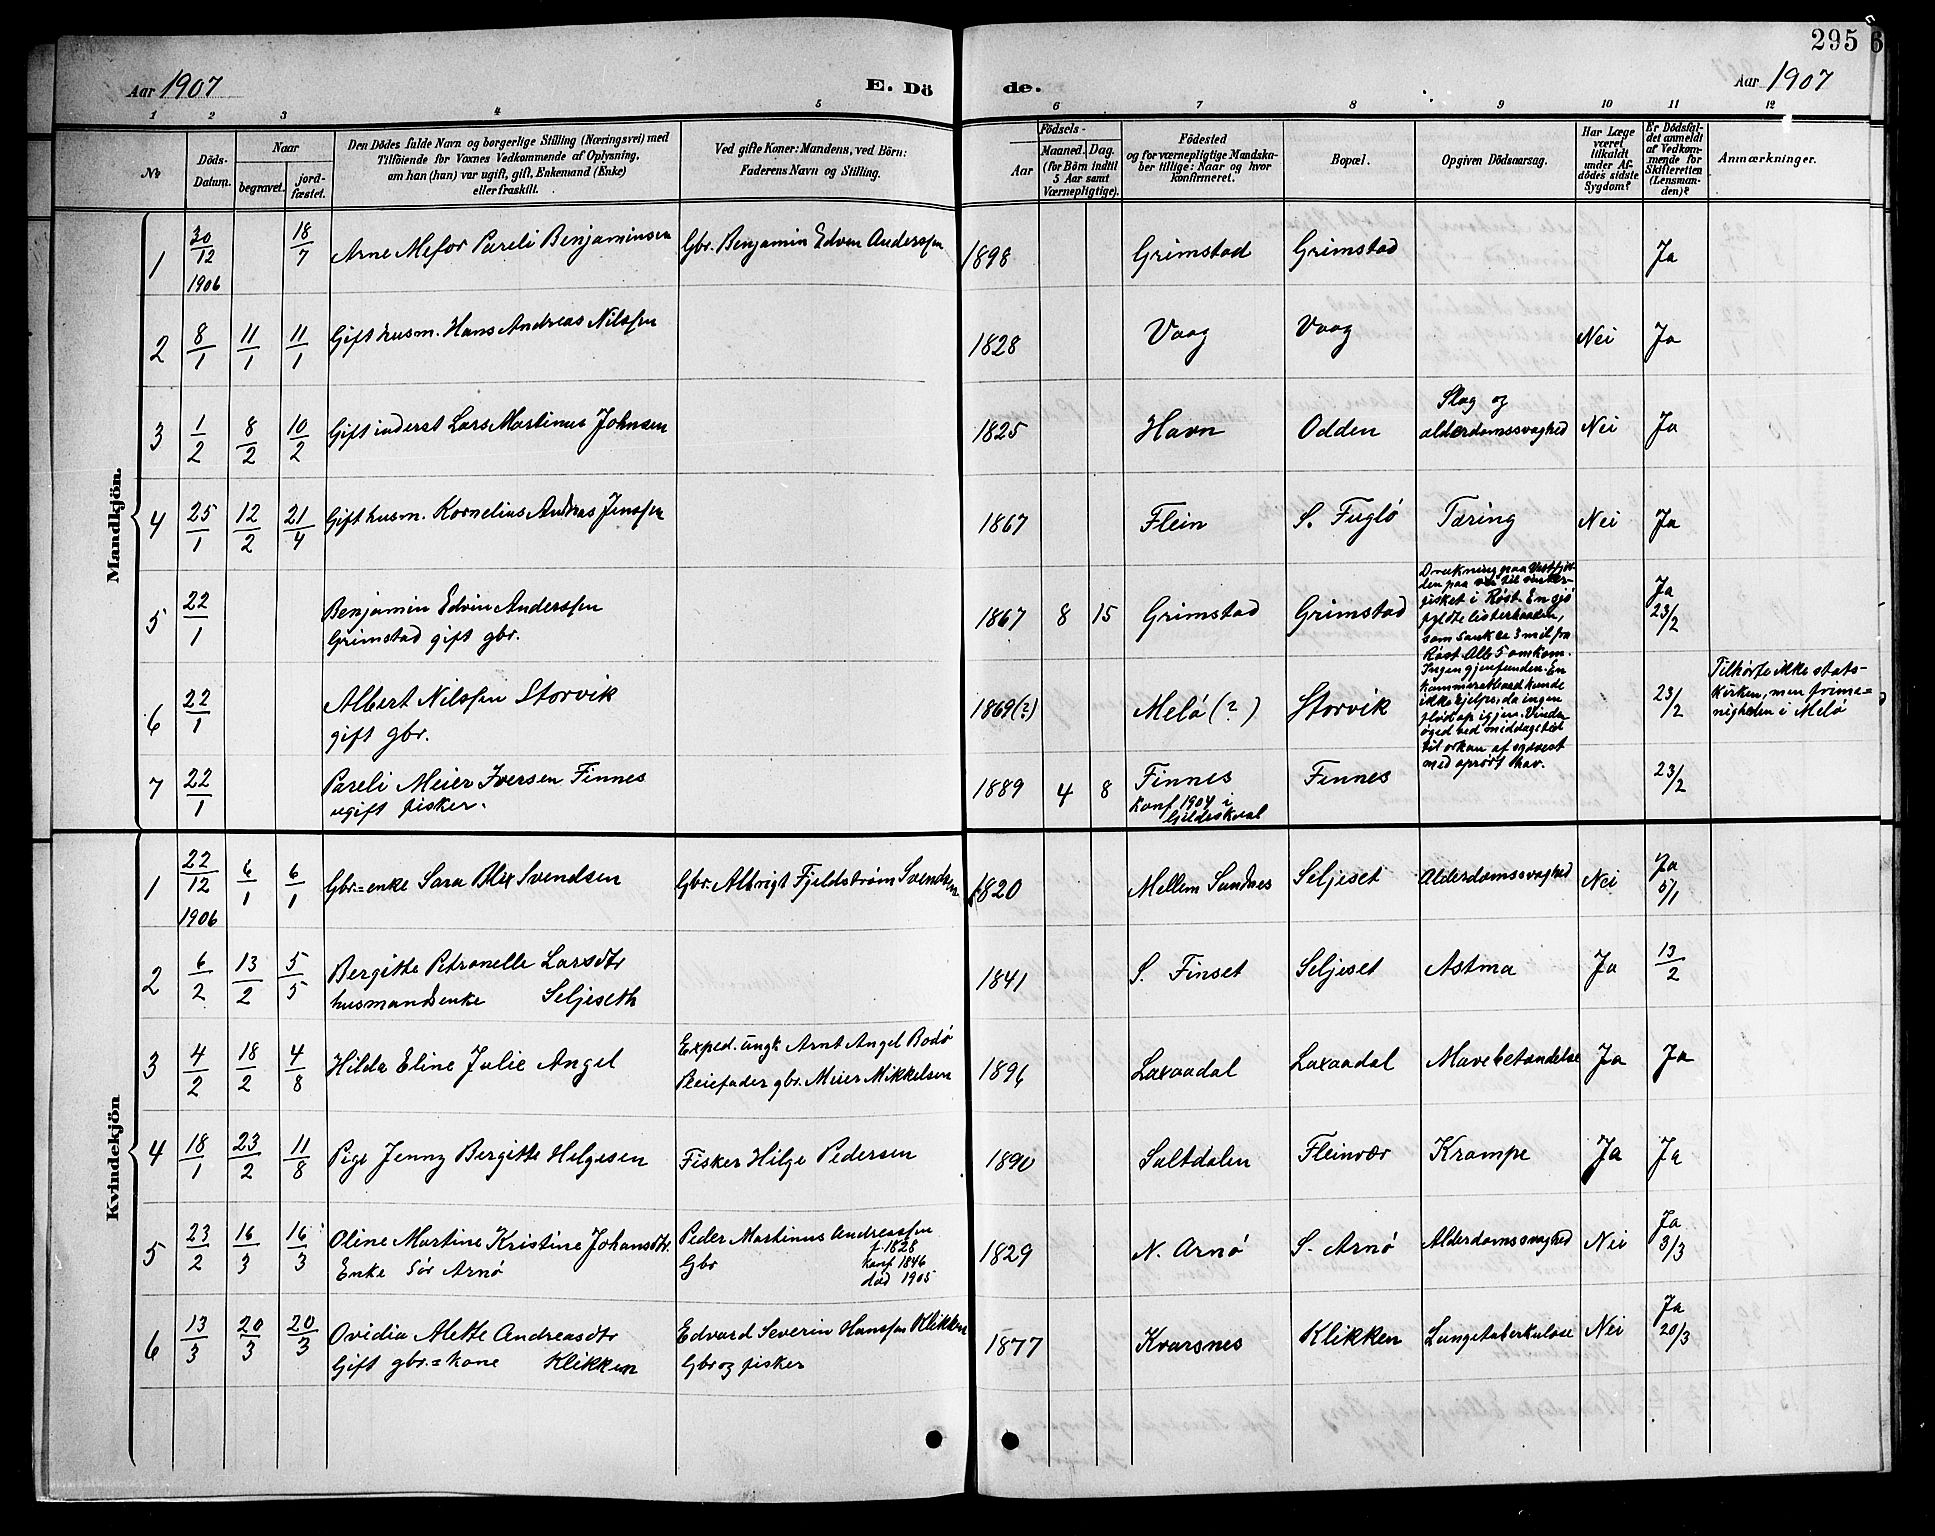 295
Aar 1907
E. Dö
de.
Aar 1907
1 2 3 4 5 6 7 8 9 10 11 12
No
Döds-
Datum.
Naar
begravet.
jord-
fæstet.
Den Dödes fulde Navn og borgerlige Stilling (Næringsvei) med
Tilföiende for Voxnes Vedkommende af Oplysning,
om han (hun) var ugift, gift, Enkemand (Enke)
eller fraskilt.
Ved gifte Koner: Mandens, ved Börn:
Faderens Navn og Stilling.
Födsels-
Aar
Maaned. Dag.
(for Börn indtil
5 Aar samt
Værnepligtige).
Födested
og for værnepligtige Mandska-
ber tillige: Naar og hvor
konfirmeret.
Bopæl.
Opgiven Dödsaarsag.
Har Læge
været
tilkaldt
under Af-
dödes sidste
Sygdom?
Er Dödsfal-
det anmeldt
af Vedkom-
mende for
Skifteretten
(Lensman-
den)?
Anmærkninger.
Mandkjön.
1 30/12 1906 18/7 Arne Mefor Pareli Benjaminsen Gbr. Benjamin Edvin Anderssen 1898 Grimstad Grimstad Ja
2 8/1 11/1 11/1 Gift husm. Hans Andreas Nilssen 1828 Vaag Vaag Nei Ja
3 1/2 8/2 10/2 Gift inderst Lars Martinus Johnsen 1825 Havn Odden Slag og
alderdomssvaghed Nei Ja
4 25/1 12/2 21/4 Gift husm. Kornelius Andreas Jenssen 1867 Flein S. Fuglö Tæring Nei Ja
5 22/1 Benjamin Edvin Anderssen
Grimstad gift gbr. 1867 8 15 Grimstad Grimstad Ja
23/2
Drukning paa Vestfjor-
den paa vei til vinter-
fisket i Røst. En sjö
fyldte listerbaaden,
som sank ca 3 mil fra
Røst. Alle 5 omkom.
Ingen gjenfunden. En
kammeratbaad kunde
ikke hjelpe, da ingen
flöd op igjen. Vinden
öged ved middagstid
til orkan af sydvest
med oprört hav.
6 22/1 Albert Nilssen Storvik
gift gbr. 1869(?) Melö (?) Storvik 23/2 Tilhörte ikke stats-
kirken, men frime=
nigheden i Melö
7 22/1 Pareli Meier Iversen Finnes
ugift fisker. 1889 4 8 Finnes
Konf 1904 i
Gildeskaal Finnes 23/2
Kvindekjön
1 22/12 1906 6/1 6/1 Gbr=enke Sara Blex Svendsen Gbr. Albrigt Fjeldström Svendsen 1820 Mellem Sundnes Seljeset Alderdomssvaghed Nei Ja
5/1
2 6/2 13/2 5/5 Bergitte Petronelle Larsdtr
husmandsenke Seljeseth 1841 S. Finset Seljeset Astma Ja 13/2
3 4/2 18/2 4/8 Hilda Eline Julie Angel Exped. ungk Arnt Angel Bodö
Pleiefader gbr. Meier Mikkelsen 1896 Laxaadal Laxaadal Mavebetændelse Ja Ja
4 18/1 23/2 11/8 Pige Jenny Bergitte Helgesen Fisker Hilge Pedersen 1890 Saltdalen Fleinvær Krampe Ja Ja
5 23/2 16/3 16/3 Oline Martine Kristine Johansdtr.
Enke Sör Arnö Peder Martinus Andreassen
Gbr f. 1828
Konf 1846
död 1905 1829 N. Arnö S. Arnö Alderdomssvaghed Nei Ja
3/3
6 13/3 20/3 20/3 Ovidia Alette Andreasdtr
Gift gbr.=kone Klikken Edvard Severin Hanssen Klikken
Gbr og fisker 1877 Kvarsnes Klikken Lungetuberkulose Nei Ja
20/3